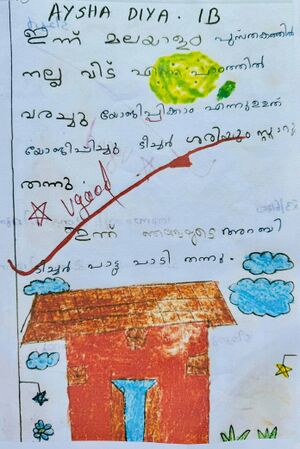 AYSHA DIYA. 1B
ഇന്ന് മലയാളം പുസ്തകത്തിൽ
നല്ല വീട് എന്ന പാഠത്തിൽ
വരച്ചു യോജിപ്പിക്കാം എന്നുള്ളത്
യോജിപ്പിച്ചു ടീച്ചർ ശരിയും സ്റ്റാറു
തന്നു
v.good
ഇന്ന് ഞങ്ങളുടെ അറബി
ടീച്ചർ പാട്ടു പാടി തന്നു.